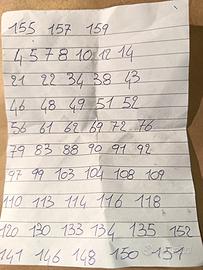 155 157 159
4 5 7 8 10 12 14
21 22 34 38 43
46 48 49 51 52
56 61 62 69 72 76
79 83 88 90 91 92
97 99 103 104 108 109
110 113 114 116 118
120 130 133 134 135 152
141 146 148 150 151